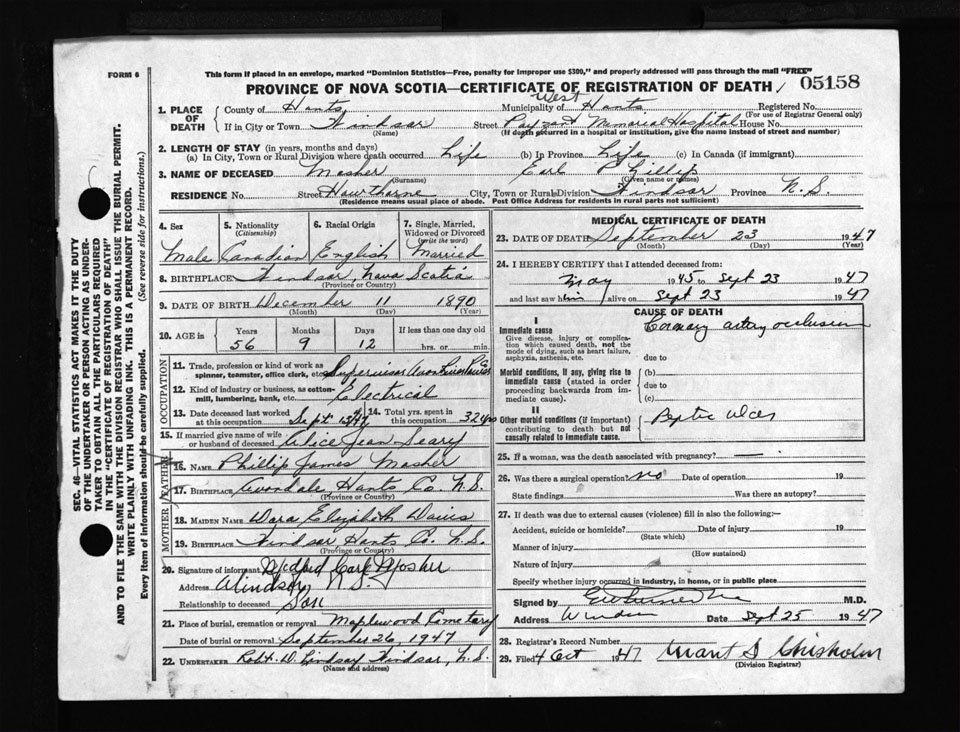 FORM 6
This form if placed in an envelope, marked "Dominion Statistics—Free, penalty for improper use $300," and properly addressed will pass through the mail "FREE"
PROVINCE OF NOVA SCOTIA—CERTIFICATE OF REGISTRATION OF DEATH 05158
1. PLACE OF DEATH
County of Hants Municipality of West Hants Registered No.
(For use of Registrar General only)
If in City or Town Windsor Street Payzant Memorial Hospital House No.
(Name) (If death occurred in a hospital or institution, give the name instead of street and number)
2. LENGTH OF STAY (in years, months and days)
(a) In City, Town or Rural Division where death occurred Life (b) In Province Life (c) In Canada (if immigrant)
3. NAME OF DECEASED Mosher Earl Phillip
(Surname) (Given name or names)
RESIDENCE No. Street Hawthorne City, Town or Rural Division Windsor Province N.S.
(Residence means usual place of abode. Post Office Address for residents in rural parts not sufficient)
4. Sex 5. Nationality (Citizenship) 6. Racial Origin 7. Single, Married, Widowed or Divorced (write the word)
Male Canadian English Married
8. BIRTHPLACE Windsor, Nova Scotia
(Province or Country)
9. DATE OF BIRTH December 11 1890
(Month) (Day) (Year)
10. AGE in Years Months Days If less than one day old
56 9 12 hrs. or min.
OCCUPATION
11. Trade, profession or kind of work as spinner, teamster, office clerk, etc. Supervisor Avon River
12. Kind of industry or business, as cotton-mill, lumbering, bank, etc. Electrical
13. Date deceased last worked at this occupation Sept 13/47 14. Total yrs. spent in this occupation 32 yrs
15. If married give name of wife or husband of deceased Alice Jean Seary
FATHER
16. NAME Phillip James Mosher
17. BIRTHPLACE Avondale, Hants Co. N.S.
(Province or Country)
MOTHER
18. MAIDEN NAME Dora Elizabeth Davis
19. BIRTHPLACE Windsor, Hants Co. N.S.
(Province or Country)
20. Signature of informant Medford Earl Mosher
Address Windsor N.S.
Relationship to deceased Son
21. Place of burial, cremation or removal Maplewood Cemetary
Date of burial or removal September 26, 1947
22. UNDERTAKER Robt. D. Lindsay Windsor, N.S.
(Name and address)
MEDICAL CERTIFICATE OF DEATH
23. DATE OF DEATH September 23 1947
(Month) (Day) (Year)
24. I HEREBY CERTIFY that I attended deceased from:
May 1945 to Sept 23 1947
and last saw him alive on Sept 23 1947
CAUSE OF DEATH
I
Immediate cause Coronary artery occlusion
Give disease, injury or complication which caused death, not the mode of dying, such as heart failure, asphyxia, asthenia, etc.
due to
Morbid conditions, if any, giving rise to immediate cause (stated in order proceeding backwards from immediate cause).
(b)
due to
(c)
II
Other morbid conditions (if important) contributing to death but not causally related to immediate cause.
Peptic ulcer
25. If a woman, was the death associated with pregnancy? —
26. Was there a surgical operation? No Date of operation 19
State findings Was there an autopsy?
27. If death was due to external causes (violence) fill in also the following:-
Accident, suicide or homicide? Date of injury 19
(State which)
Manner of injury
(How sustained)
Nature of injury
Specify whether injury occurred in industry, in home, or in public place
Signed by M.D.
Address Windsor Date Sept 25 1947
28. Registrar's Record Number
29. Filed 4 Oct 1947 Grant S Chisholm
(Division Registrar)
SEC. 46—VITAL STATISTICS ACT MAKES IT THE DUTY
OF THE UNDERTAKER OR PERSON ACTING AS UNDER-
TAKER TO OBTAIN ALL THE PARTICULARS REQUIRED
IN THE "CERTIFICATE OF REGISTRATION OF DEATH"
AND TO FILE THE SAME WITH THE DIVISION REGISTRAR WHO SHALL ISSUE THE BURIAL PERMIT.
WRITE PLAINLY WITH UNFADING INK. THIS IS A PERMANENT RECORD.
Every item of information should be carefully supplied. (See reverse side for instructions.)